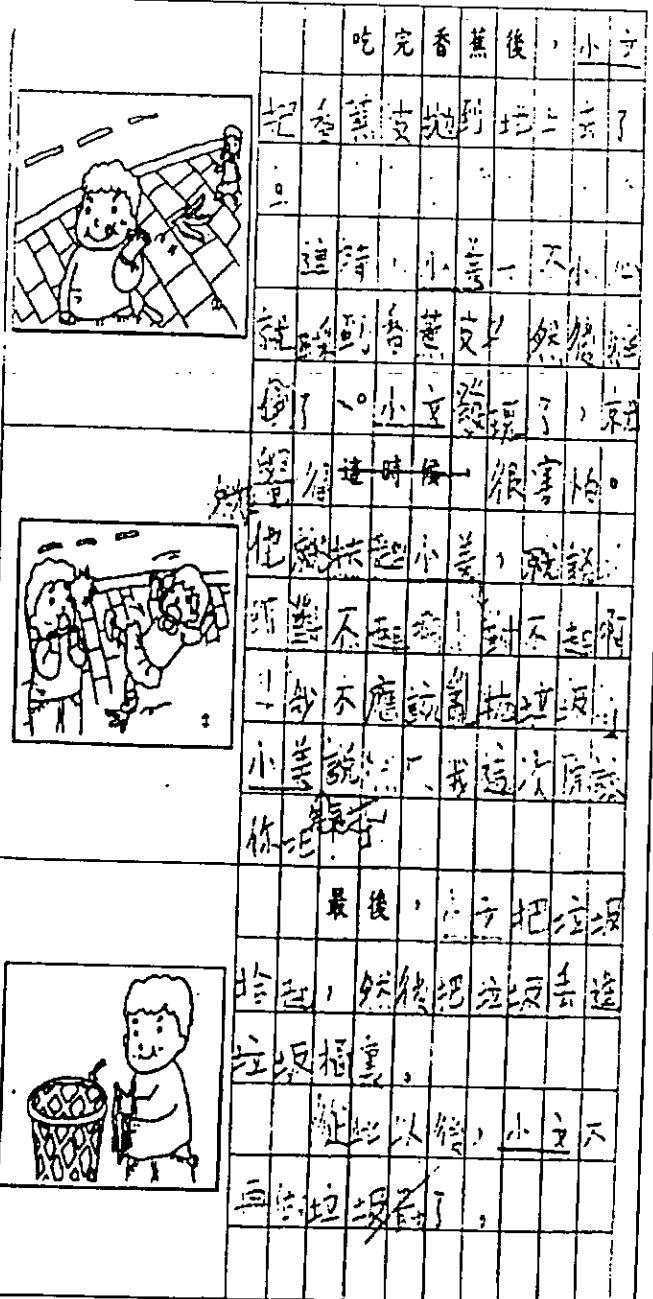 吃完香蕉後，小文
把香蕉皮拋到地上去了
。
這時，小美一不小心
就踩到香蕉皮，然後
倒了。小文發現了，就
覺得這時候很害怕。
他就扶起小美，就說：
對不起啊！對不起啊
！我不應該亂拋垃圾！
小美說：我這次原諒
你吧
最後，小文把垃圾
拾起，然後把垃圾丟進
垃圾桶裏。
從此以後，小文不
再 垃圾了。